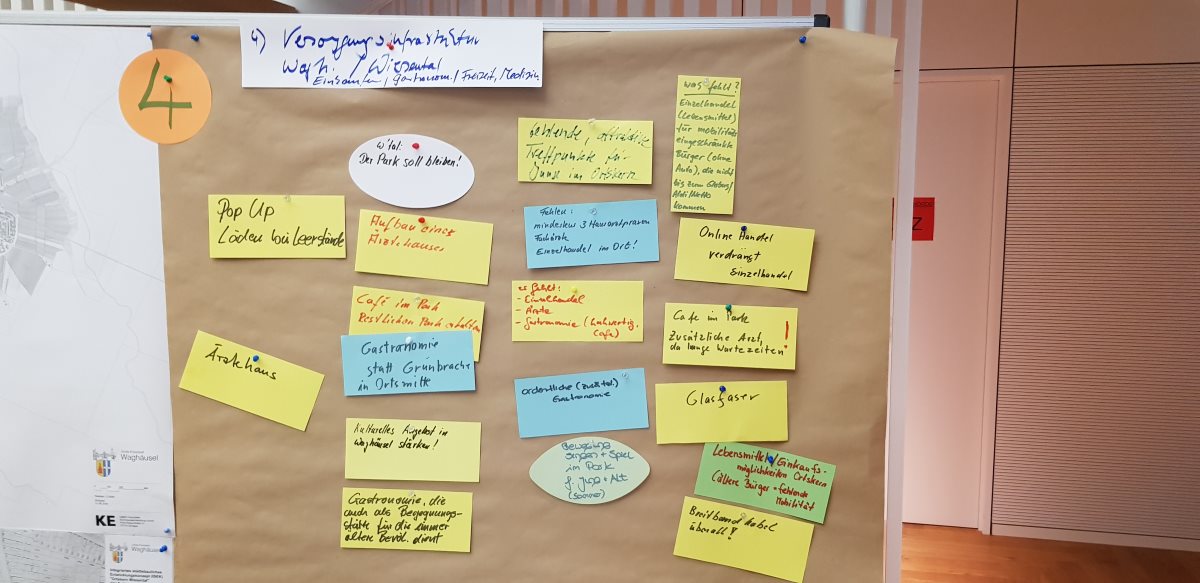 4
4) Versorgungsinfrastruktur
Wagh. / Wiesental
Einkaufen, Gastronom. / Freizeit, Medizin
W'tal:
Der Park soll bleiben!
Pop Up
Läden bei Leerstände
Aufbau eines
Ärztehauses
Café im Park
Restlichen Park erhalten
Gastronomie
statt Grünbrache
in Ortsmitte
Ärztehaus
kulturelles Angebot in
Waghäusel stärken!
Gastronomie, die
auch als Begegnungs-
stätte für die immer
ältere Bevölk. dient
fehlende, attraktive
Treffpunkte für
Junge im Ortskern
Fehlen:
mindestens 3 Hausarztpraxen
Fachärzte
Einzelhandel im Ort!
es fehlt:
- Einzelhandel
- Ärzte
- Gastronomie (hochwertig,
Café)
ordentliche (zusätzl.)
Gastronomie
Bewegung
Singen + Spiel
im Park
f. Jung + Alt
(Sommer)
Was fehlt?
Einzelhandel
(Lebensmittel)
für mobilitäts
eingeschränkte
Bürger (ohne
Auto), die nicht
bis zum Globus/
Aldi/Netto
kommen
Online Handel
verdrängt
Einzelhandel
Cafe im Park
Zusätzliche Arzt,
da lange Wartezeiten!
Glasfaser
Lebensmittel/Einkaufs-
möglichkeiten Ortskern
(ältere Bürger - fehlende
Mobilität
Breitbandkabel
überall!
Waghäusel
KE
Waghäusel
Z